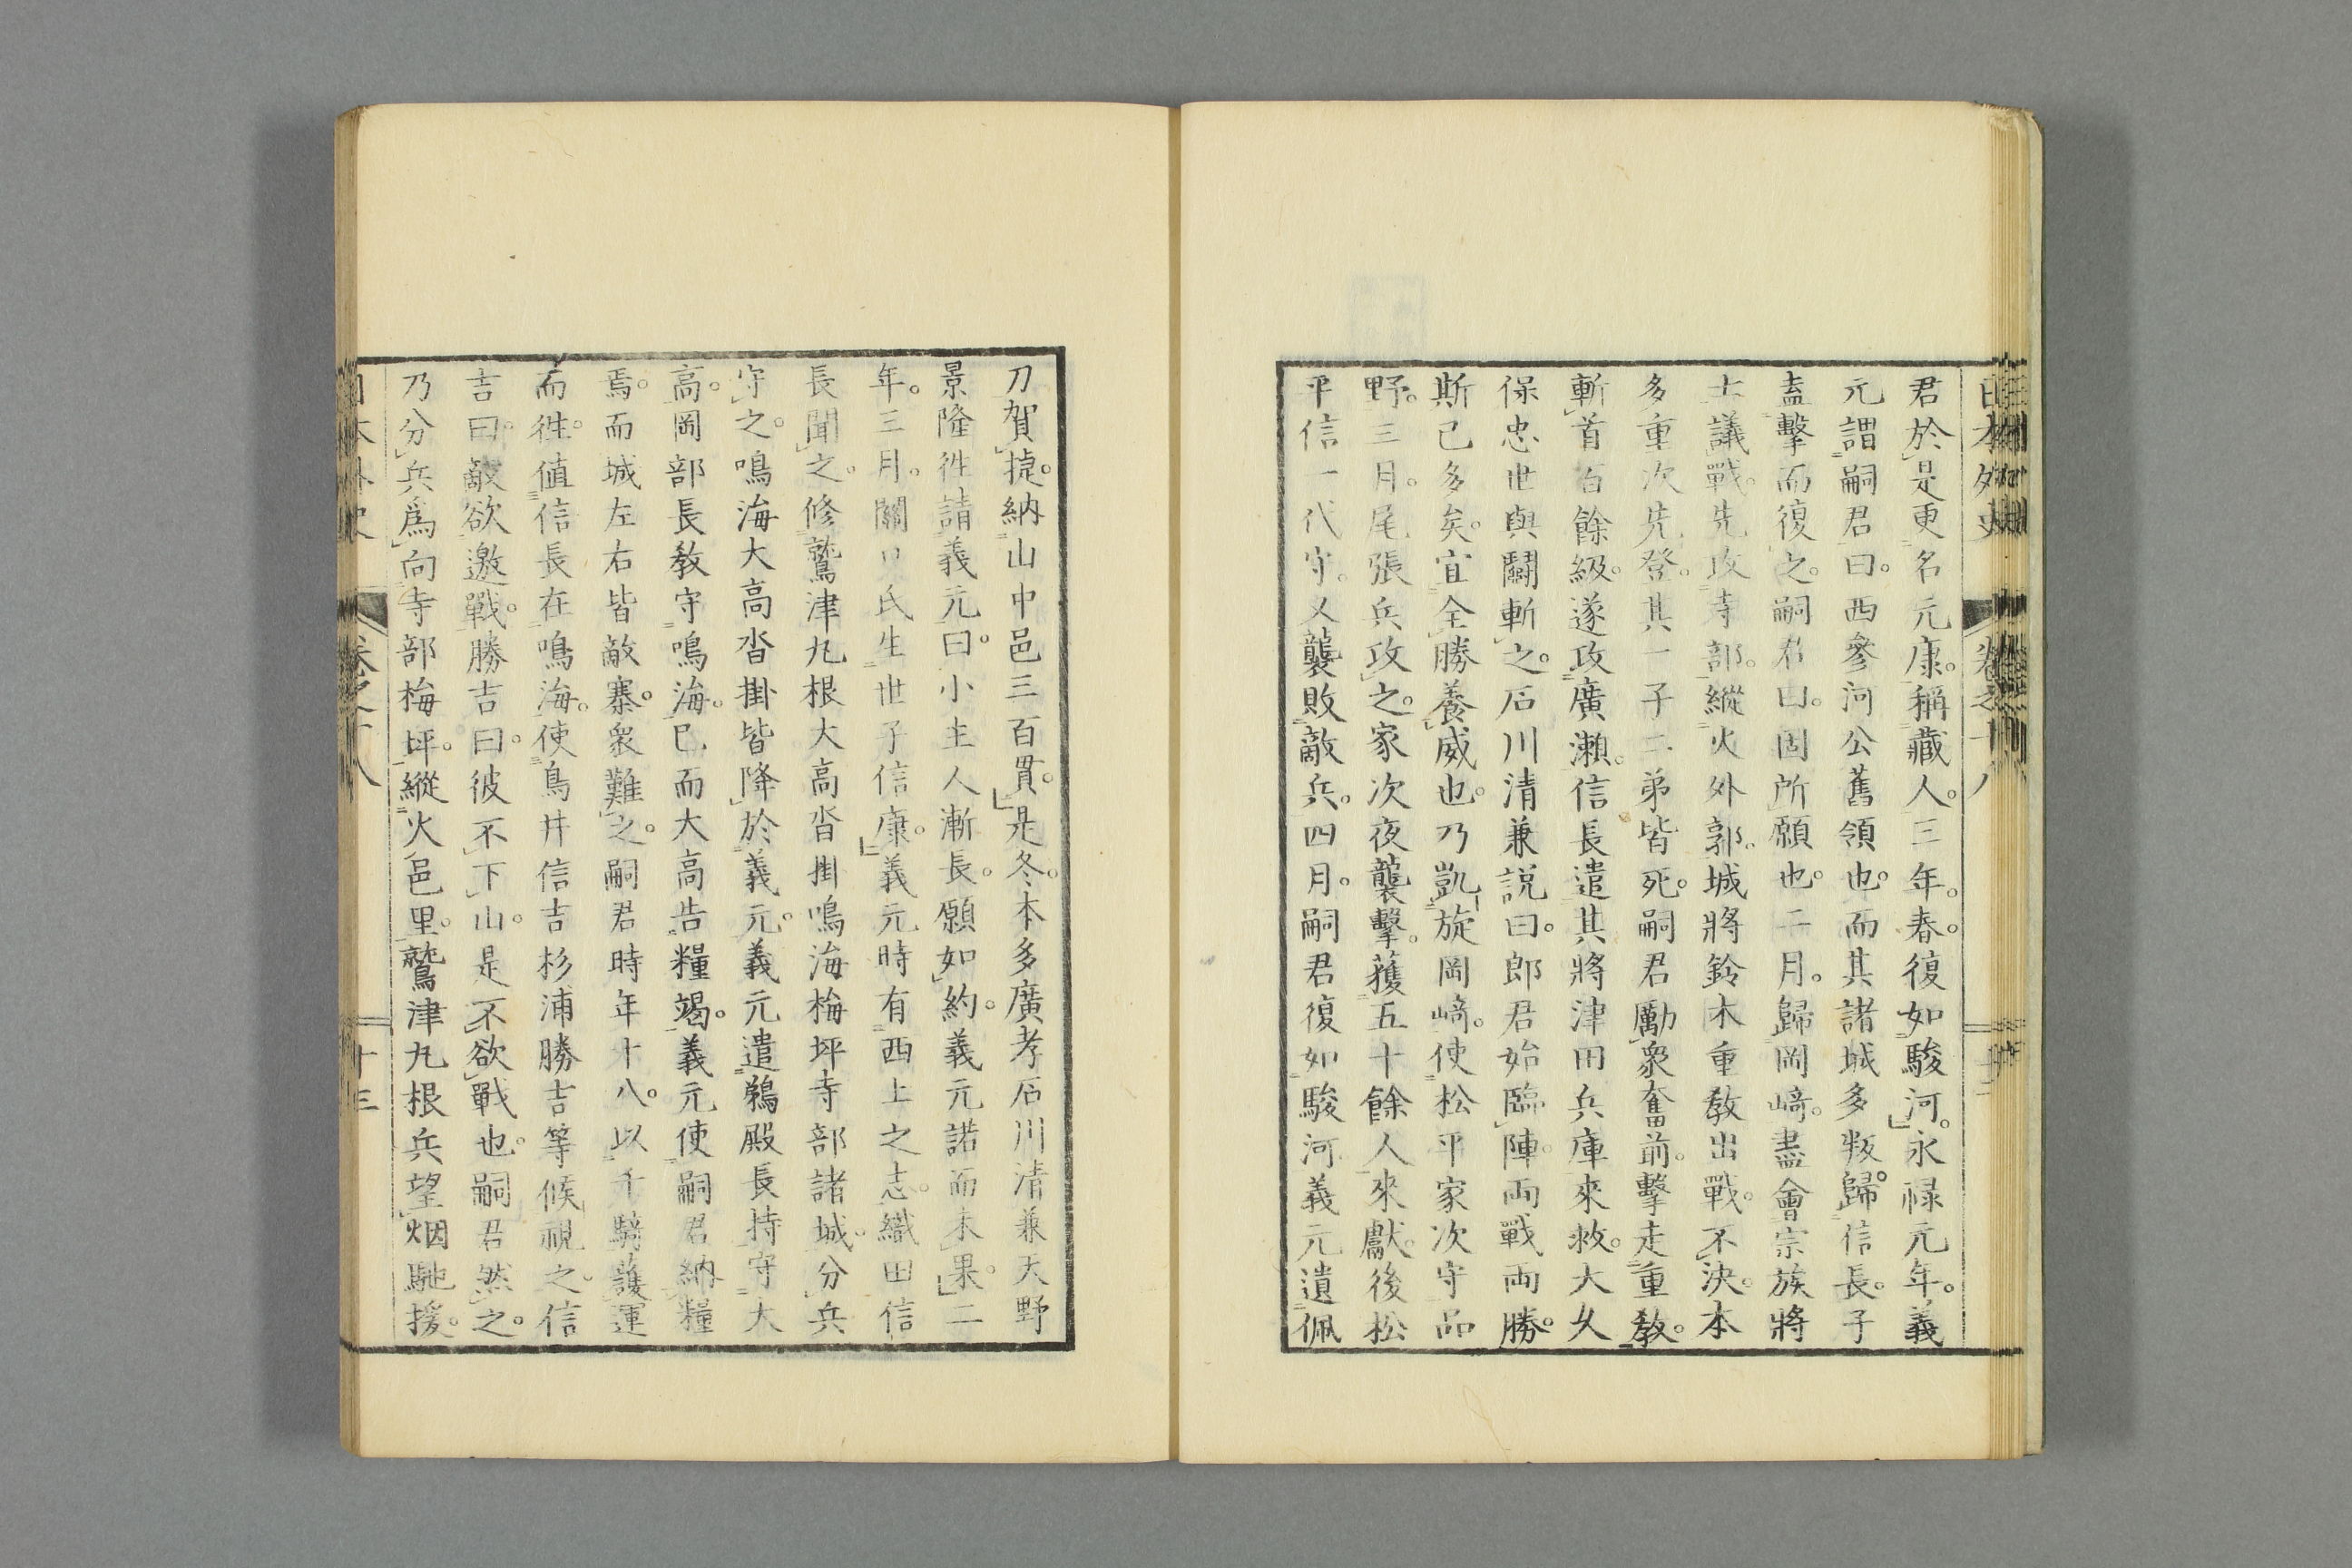 日本外史 卷之十八 十二
君於是更名元康。稱藏人。三年。春。復如駿河。永祿元年。義
元謂嗣君曰。西參河公舊領也。而其諸城多叛歸信長。子
盍擊而復之。嗣君曰。固所願也。二月。歸岡﨑。盡會宗族將
士議戰。先攻寺部。縱火外郭。城將鈴木重敎出戰。不決。本
多重次先登。其一子二弟皆死。嗣君勵衆奮前。擊走重敎。
斬首百餘級。遂攻廣瀨。信長遣其將津田兵庫來救。大久
保忠世與鬭斬之。石川清兼説曰。郎君始臨陣。両戰両勝。
斯已多矣。宜全勝養威也。乃凱旋岡﨑。使松平家次守品
野。三月。尾張兵攻之。家次夜襲擊。獲五十餘人來獻。後松
平信一代守。又襲敗敵兵。四月。嗣君復如駿河義元遺佩
刀賀捷。納山中邑三百貫。是冬。本多廣孝石川清兼天野
景隆徃請義元曰。小主人漸長。願如約。義元諾而未果。二
年。三月。關口氏生世子信康。義元時有西上之志。織田信
長聞之。修鷲津九根大高沓掛鳴海梅坪寺部諸城。分兵
守之。鳴海大高沓掛皆降於義元。義元遣鵜殿長持守大
高。岡部長敎守鳴海。已而大高告糧竭。義元使嗣君納糧
焉。而城左右皆敵寨。衆難之。嗣君時年十八。以千騎護運
而徃。値信長在鳴海。使鳥井信吉杉浦勝吉等候視之。信
吉曰。敵欲邀戰。勝吉曰。彼不下山。是不欲戰也。嗣君然之。
乃分兵爲向寺部梅坪。縱火邑里。鷲津九根兵望烟馳援。
日本外史 卷之十八 十三